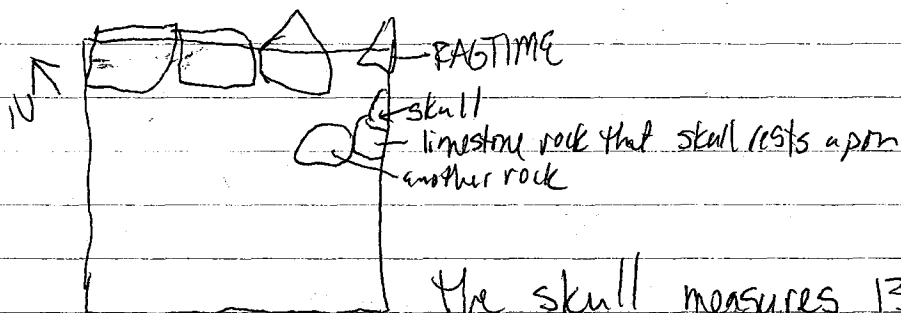 RAGTIME
N
skull
limestone rock that skull rests upon
another rock
The skull measures 13